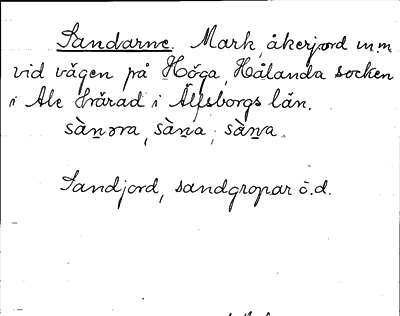 Sandarne. Mark, åkerjord m.m
vid vägen på Höga, Hålanda socken
i Ale härad i Älfsborgs län.
sàn̲ərra, sàn̲a, sàn̲a.
Sandjord, sandgropar o.d.